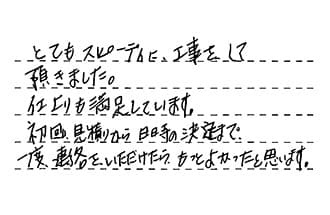 とてもスピーディに、工事をして
頂きました。
仕上りも満足しています。
初回見積りから日時の決定まで
一度、連絡をいただけたら、もっとよかったと思います。